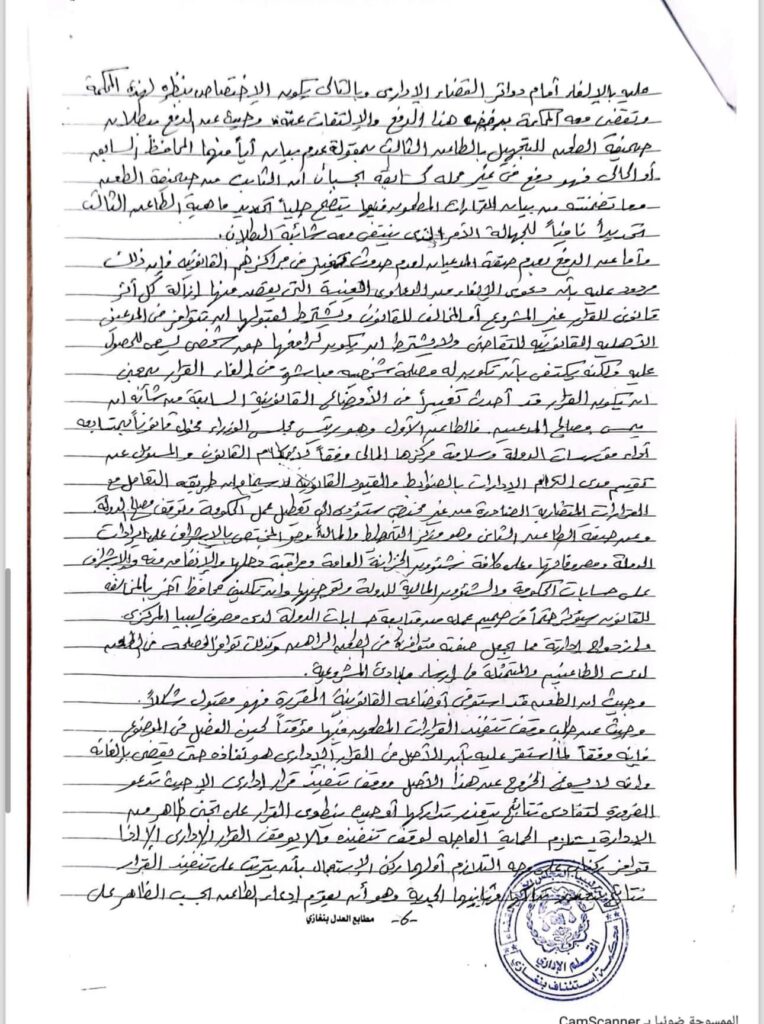 عليه بالإلغاء أمام دوائر القضاء الإداري وبالتالي يكون الاختصاص بنظره لهذه المحكمة
وتقضي معه المحكمة برفض هذا الدفع والالتفات عنه، وحيث عن الدفع ببطلان
صحيفة الطعن للتجهيل بالطاعن الثالث بمقولة عدم بيان أياً منها المحافظ السابق
أو الحالي فهو دفع في غير محله كسابقه بحسبان أن الثابت من صحيفة الطعن
وما تضمنته من بيان للقرارات المطعون فيها يتضح جلياً تحديد ماهية الطاعن الثالث
تحديداً نافياً للجهالة الأمر الذي ينتفي معه شائبة البطلان.
وأما عن الدفع بعدم صفة المدعيان لعدم حدوث تغيير في مراكزهم القانونية فإن ذلك
مردود عليه بأن دعوى الإلغاء من الدعاوى العينية التي يقصد منها إزالة كل أثر
قانوني للقرار غير المشروع أو المخالف للقانون ويشترط لقبولها ان تتوافر في المدعين
الأهلية القانونية للتقاضي ولا يشترط ان يكون لرافعها حق شخصي يسعى للحصول
عليه ولكنه يكتفى بأن تكون له مصلحة شخصية مباشرة في إلغاء القرار بمعنى
ان يكون القرار قد أحدث تغييراً في الأوضاع القانونية السابقة من شأنه ان
يمس مصالح المدعين فالطاعن الأول وهو رئيس مجلس الوزراء مخول قانوناً بمتابعة
أداء مؤسسات الدولة وسلامة مركزها المالي وفقاً لأحكام القانون والمسئول عن
تقييم مدى التزام الإدارات بالضوابط والقيود القانونية لاسيما ان طريقة التعامل مع
القرارات الصادرة من غير مختص ستؤدي إلى تعطل عمل الحكومة وتوقف مصالح الدولة.
وعن صفة الطاعن الثاني وهو وزير التخطيط والمالية وهو المختص بالإشراف على إيرادات
الدولة ومصروفاتها وعلى كافة شئون الخزانة العامة ومراقبة دخلها والإنفاق منه والإشراف
على حسابات الحكومة والشئون المالية للدولة وتوجيهها وان تكليف محافظ آخر بالمخالفة
للقانون سيؤثر حتماً في صميم عمله من متابعة حسابات الدولة لدى مصرف ليبيا المركزي
وازدواج إدارية مما يجعل صفته متوافرة في الطعن الراهن وكذلك توافر المصلحة في الطعن
لدى الطاعنين والمتمثلة في إرساء مبادئ المشروعية.
وحيث ان الطعن قد استوفى أوضاعه القانونية المقررة فهو مقبول شكلاً.
وحيث عن طلب وقف تنفيذ القرارات المطعون فيها مؤقتاً لحين الفصل في الموضوع
فإنه وفقاً لما استقر عليه بأن الأصل في القرار الإداري هو نفاذه حتى يقضى بإلغائه
وانه لا يسوغ الخروج عن هذا الأصل ووقف تنفيذ قرار إداري الا حيث تدعو
الضرورة لتفادي نتائج يتعذر تداركها أو حيث ينطوي القرار على تجني ظاهر من
الإدارة يستلزم الحماية العاجلة لوقف تنفيذه ولا يوقف القرار الإداري إلا إذا
توافر ركنان على وجه التلازم أولهما ركن الاستعجال بأن يترتب على تنفيذ القرار
نتائج يتعذر تداركها وثانيهما الجدية وهو أن يقوم ادعاء الطاعن بحسب الظاهر على
-6-
مطابع العدل بنغازي
القلم الإداري
محكمة إستئناف بنغازي
الممسوحة ضوئيا بـ CamScanner